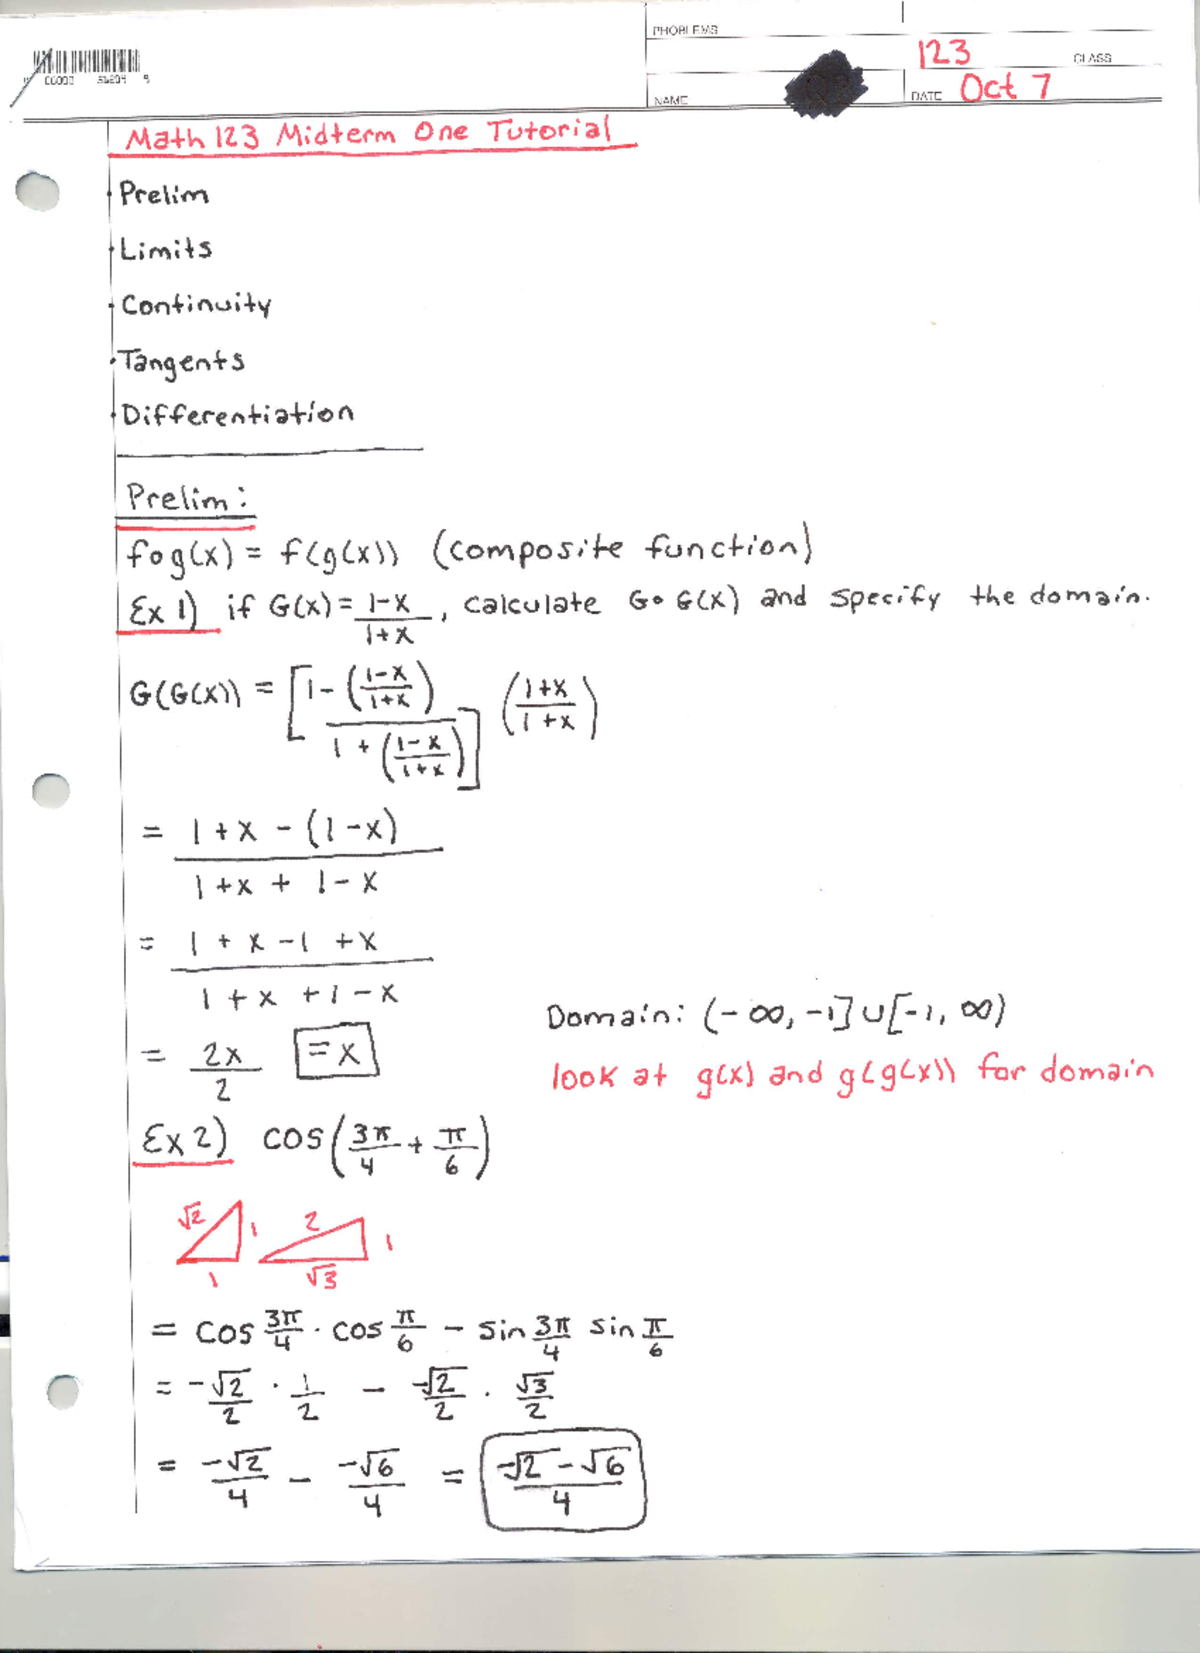 PROBLEMS
123 CLASS
NAME
DATE Oct 7
Math 123 Midterm One Tutorial
· Prelim
· Limits
· Continuity
· Tangents
· Differentiation
Prelim:
fog(x) = f(g(x)) (composite function)
Ex 1) if G(x) = (1-x)/(1+x), calculate G∘G(x) and specify the domain.
G(G(x)) = [1-((1-x)/(1+x)) / 1+((1-x)/(1+x))] ((1+x)/(1+x))
= (1+x-(1-x)) / (1+x+1-x)
= (1+x-1+x) / (1+x+1-x)
Domain: (-∞,-1]∪[-1,∞)
= 2x/2 = x
look at g(x) and g(g(x)) for domain
Ex 2) cos(3π/4 + π/6)
√2 1 1
2 1 √3
= cos 3π/4 · cos π/6 - sin 3π/4 sin π/6
= -√2/2 · 1/2 - -√2/2 · √3/2
= -√2/4 - -√6/4 = (-√2-√6)/4